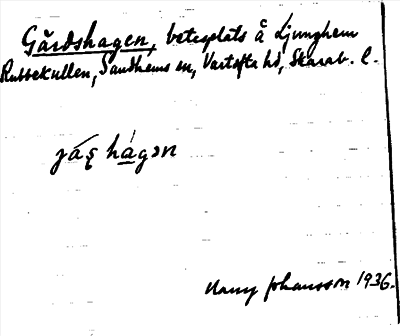 Gårdshagen, betesplats å Ljunghem
Rubbekullen, Sandhems sn, Vartofta hd, Skarab. l.
hágən
Harry Johansson 1936.